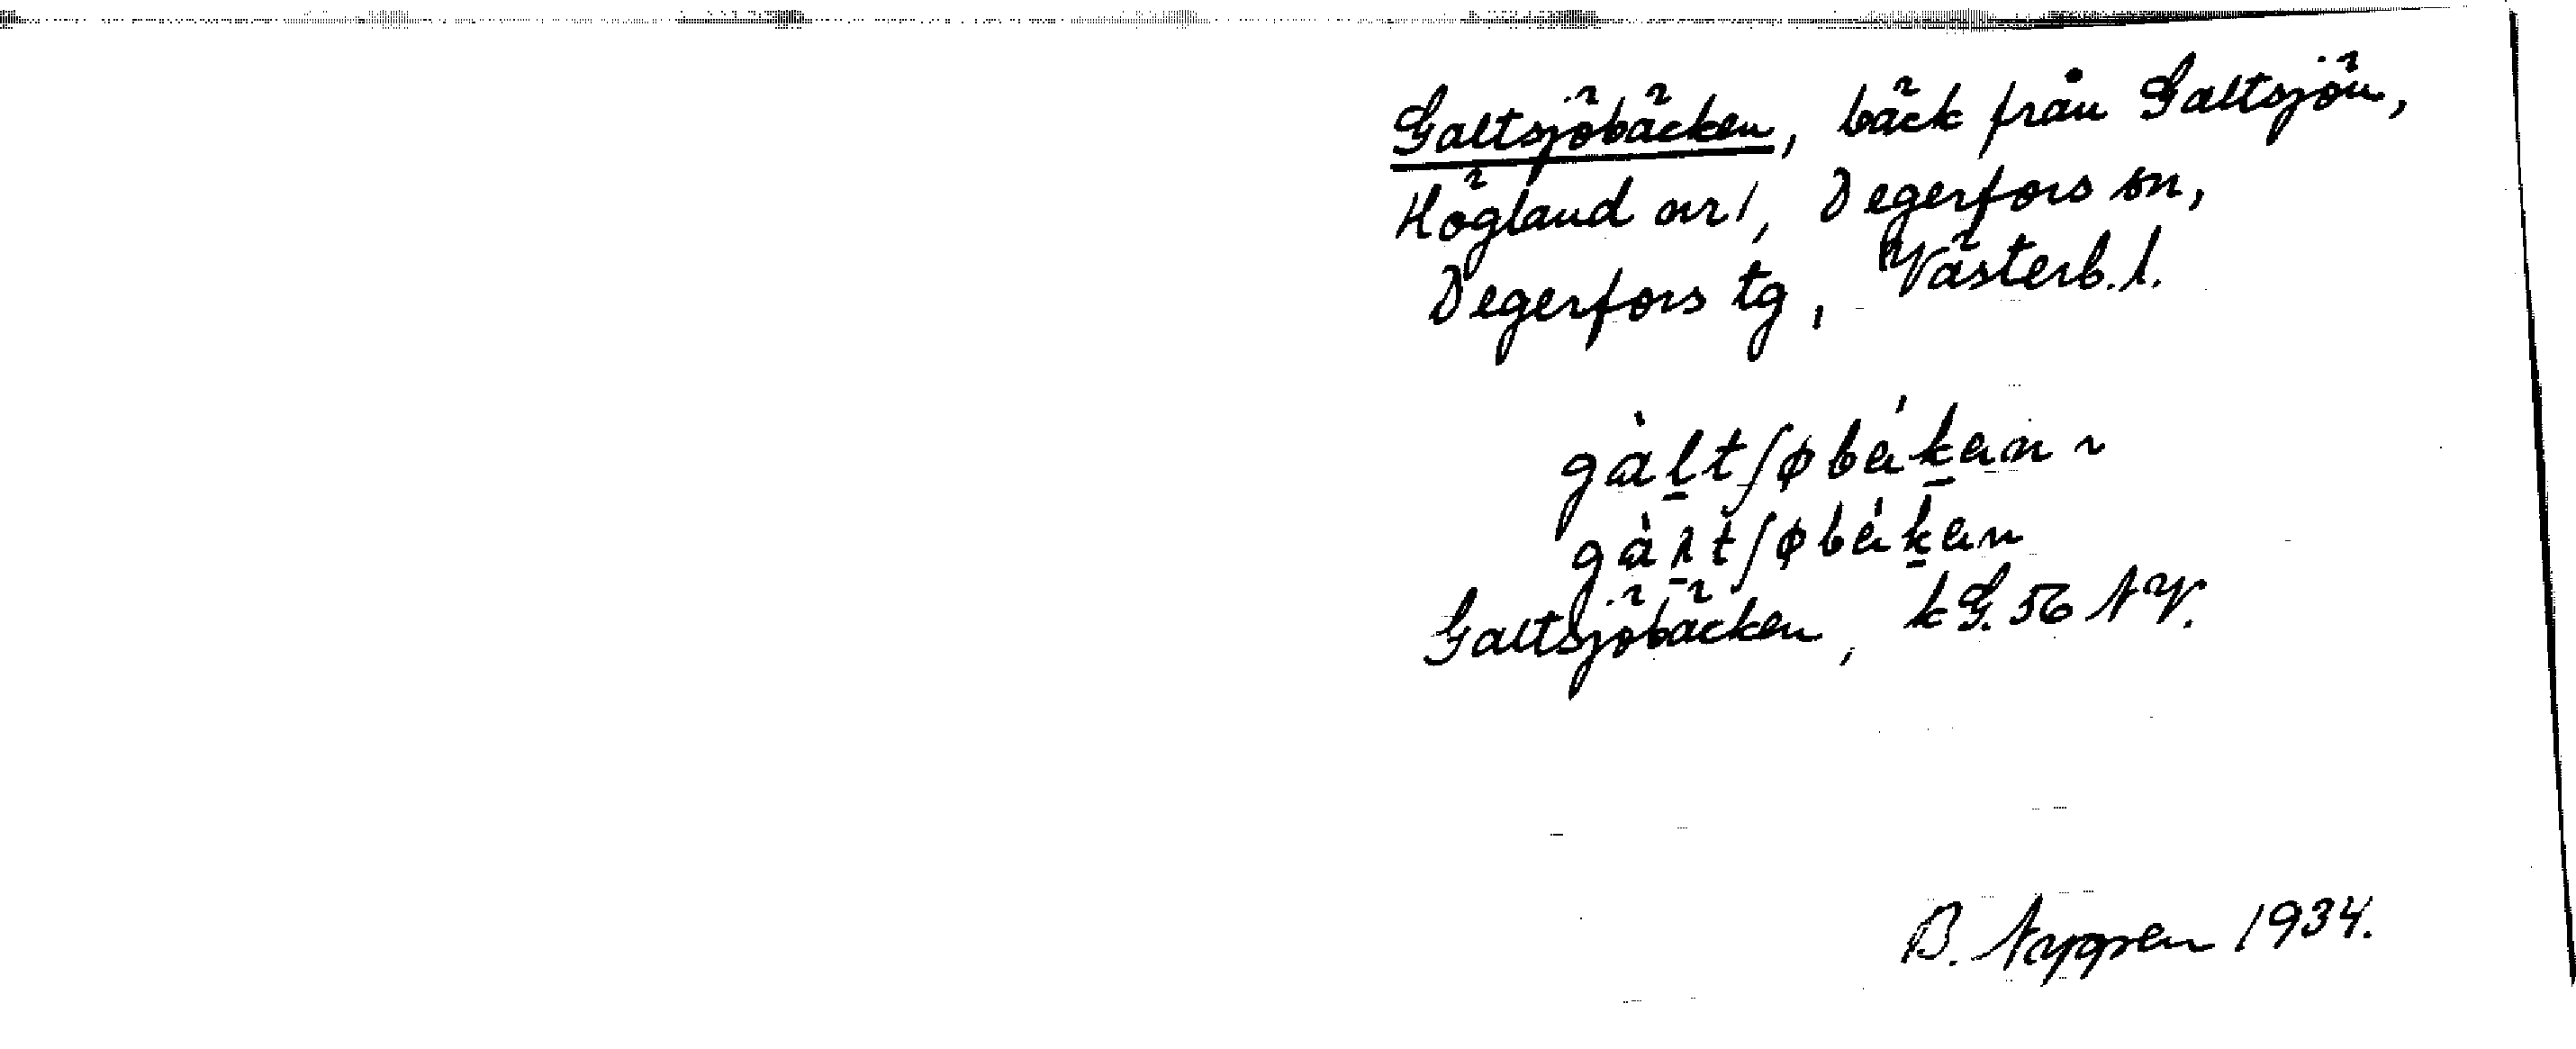 Galtsjöbäcken, bäck från Galtsjön,
Högland nr 1, Degerfors sn,
Degerfors tg, Västerb. l.
gàl̠tʃøbék̠en ~
gàɽ̠tʃøbék̠en
Galtsjöbäcken, kG. 56 NV.
B. Nygren 1934.